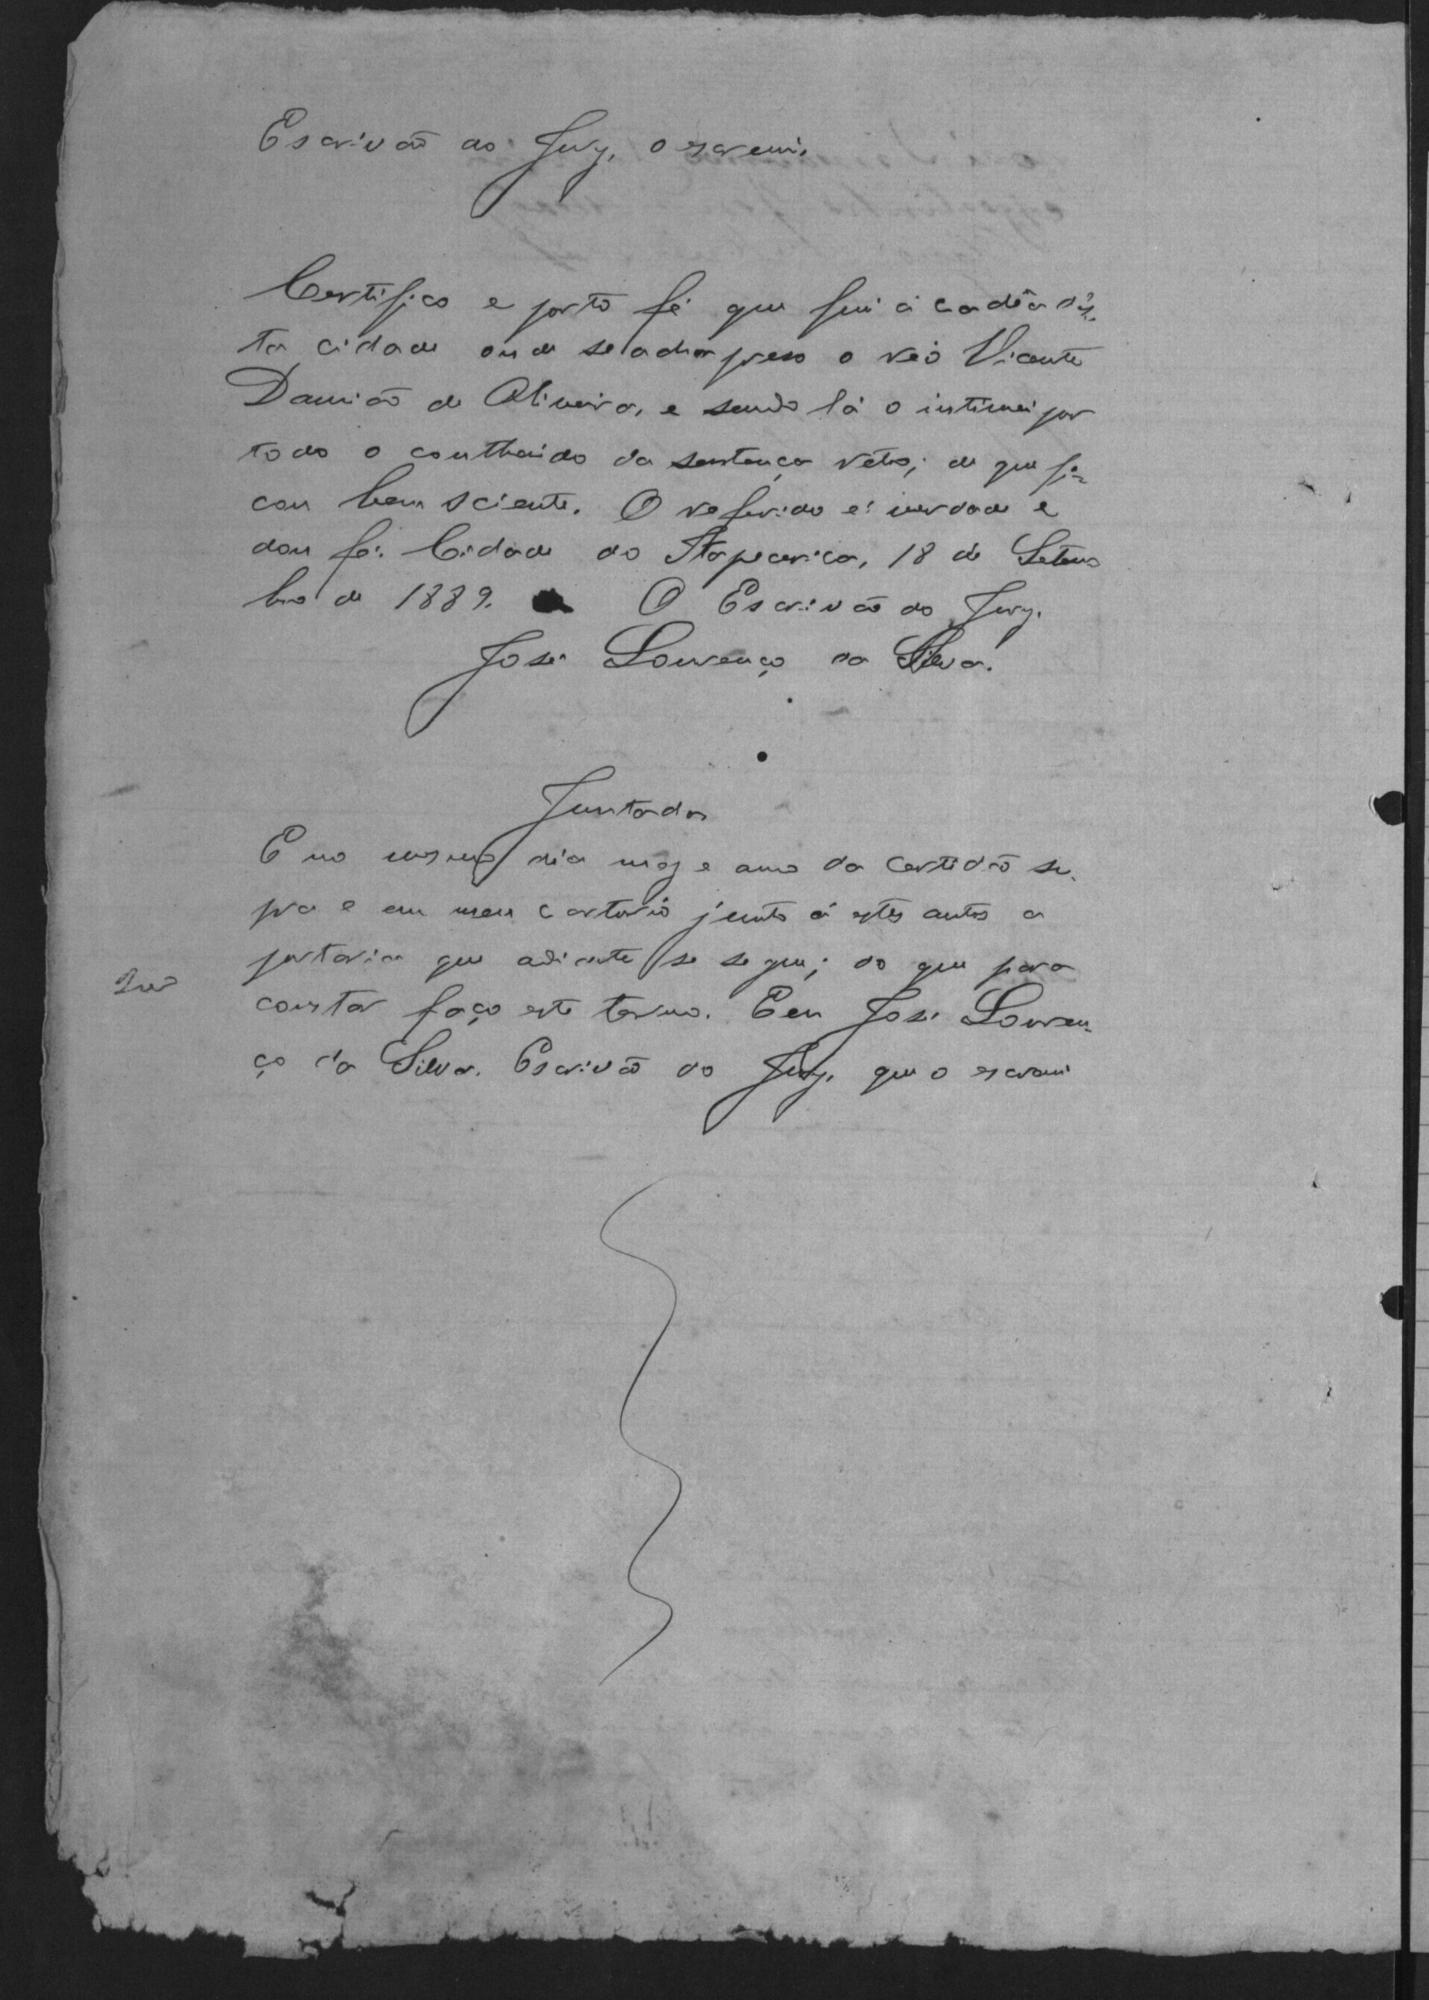 Escrivão do Jury, o screvi.
Certifico e porto fé que fui á cadêa des-
ta cidade onde se acha preso o réo Vicente
Damião de Oliveira, e sendo lá o intimei por
todo o conthaido da sentença retro; de que fi-
cou bem sciente. O referido é verdade e
dou fé. Cidade do Itapecerica, 18 de Setem
bro de 1889. O Escrivão do Jury.
José Lourenço da Silva.
Juntada
E no mesmo dia mez e anno da certidão su-
pra e em meu cartorio junto á estes autos a
portaria que adiante se segue; do que para
constar faço este termo. E eu José Louren-
ço da Silva. Escrivão do Jury, que o escrevi